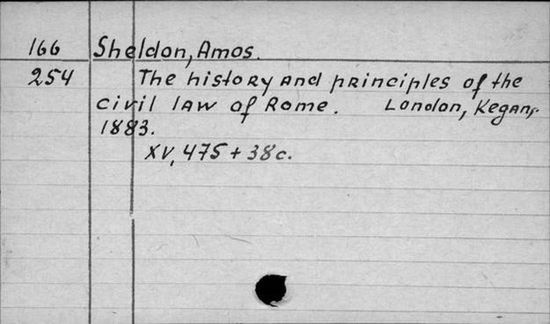 166 Sheldon, Amos.
254 The history and principles of the
civil law of Rome. London, Kegan,
1883.
XV, 475 + 38 c.